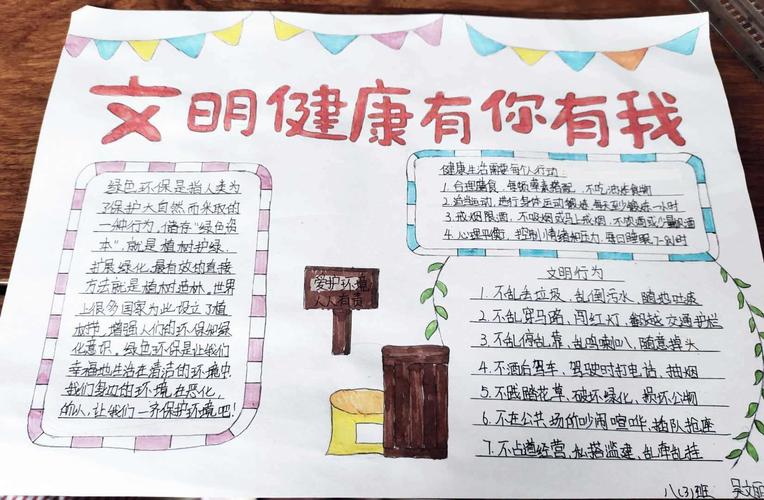 文明健康有你有我
绿色环保是指人类为
了保护大自然而采取的
一种行为,储存“绿色资
本”,就是植树护绿,
扩展绿化,最有效的直接
方法就是植树造林,世界
上很多国家为此设立了植
树节,增强人们的环保和绿
化意识。绿色环保是让我们
幸福地生活在清洁的环境中
我们身边的环境在恶化,
所以,让我们一齐保护环境吧!
健康生活需要每个人行动:
1.合理膳食,每场荤素搭配,不吃油炸食物
2.适当运动,进行身体运动锻炼,每天至少锻炼一小时
3.戒烟限酒,不吸烟或马上戒烟,不饮酒或少量饮酒
4.心理平衡,控制情绪和压力,每日睡眠7-8小时
爱护环境
人人有责
文明行为
1.不乱丢垃圾、乱倒污水、随地吐痰
2.不乱穿马路、闯红灯、翻越交通护栏
3.不乱停乱靠、乱鸣喇叭、随意掉头
4.不酒后驾车、驾驶时打电话、抽烟
5.不践踏花草、破坏绿化、损坏公物
6.不在公共场价吵闹喧哗、插队抢座
7.不占道经营、私搭滥建、乱牵乱挂
八(3)班 吴文明